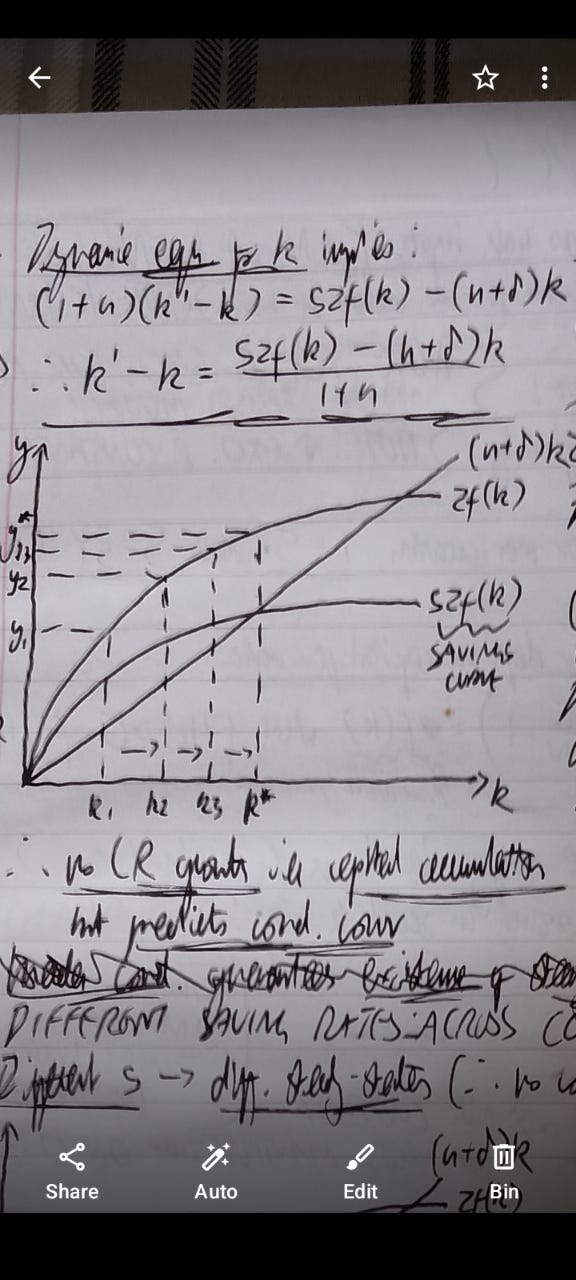 Dynamic eqn for k implies:
(1+n)(k'-k) = szf(k) - (n+δ)k
∴ k' - k = szf(k) - (n+δ)k
1+n
y
(n+δ)k
zf(k)
y*
y3
y2
szf(k)
y1
SAVINGS
CURVE
k1 k2 k3 k* k
∴ no LR growth via capital accumulation
but predicts cond. conv
guarantees existence of
DIFFERENT SAVING RATES ACROSS CO
Different s → diff. steady-states (∴ no
(n+δ)k
zf(k)
Share Auto Edit Bin